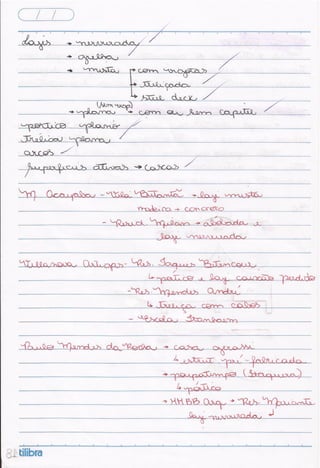 lajes → nervurada
→ grelha
→ mista → com vigotas
→ treliçada
→ steel deck
(sem viga)
→ plana → com ou sem capitel
pórtico plano
treliça plana
arcos
superfícies ativas → cascas
M. Acayaba - Vila Butantã → laj mista
madeira + concreto
- Resid. Milan → abobada e
laj nervurada
Vilanova Artigas - Res. Taques Bittencourt
↳ pórtico e laj caixão perdido
- Res. Mendes André
↳ treliça com caixão
- Escola Itanhaém
Paulo Mendes da Rocha → casa Gerassi
↳ estrut. pré-fabricada
→ (Itaquera)
↳ pórtico
→ MMBB Arq. → Res.
laj nervurada
81 tilibra